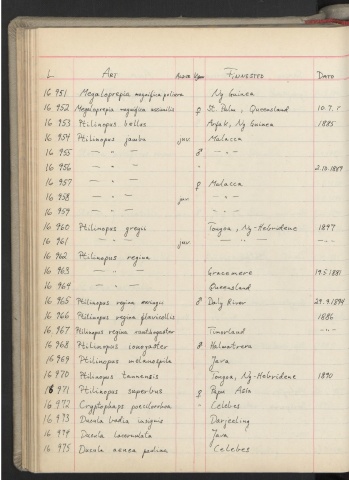 L ART ALDER Kjønn FINNESTED DATO
16 951 Megaloprepia magnifica poliura Ny Guinea
16 952 Megaloprepia magnifica assimilis ♀ St. Palm, Queensland 10.7.
16 953 Ptilinopus bellus Arfak, Ny Guinea 1885
16 954 Ptilinopus jambu juv. Malacca
16 955 — „ — ♂ — „ —
16 956 — „ — „ 2.10.1889
16 957 — „ — ♀ Malacca
16 958 — „ — juv — „ —
16 959 — „ — — „ —
16 960 Ptilinopus gregii Tongoa, Ny-Hebridene 1897
16 961 — „ — juv — „ — „ — — „ —
16 962 Ptilinopus regina
16 963 — „ — Gracemere 19.5.1881
16 964 — „ — Queensland
16 965 Ptilinopus regina ewingii ♂ Daly River 29.9.1894
16 966 Ptilinopus regina flavicollis 1886
16 967 Ptilinopus regina xanthogaster Timorland — „ —
16 968 Ptilinopus ionogaster ♂ Halmahera
16 969 Ptilinopus melanospila Java
16 970 Ptilinopus tannensis Tongoa, Ny-Hebridene 1890
16 971 Ptilinopus superbus ♀ Papu Asia
16 972 Cryptophaps poecilorrhoa „ Celebes
16 973 Ducula badia insignis Darjeeling
16 974 Ducula lacernulata Java
16 975 Ducula aenea paulina Celebes